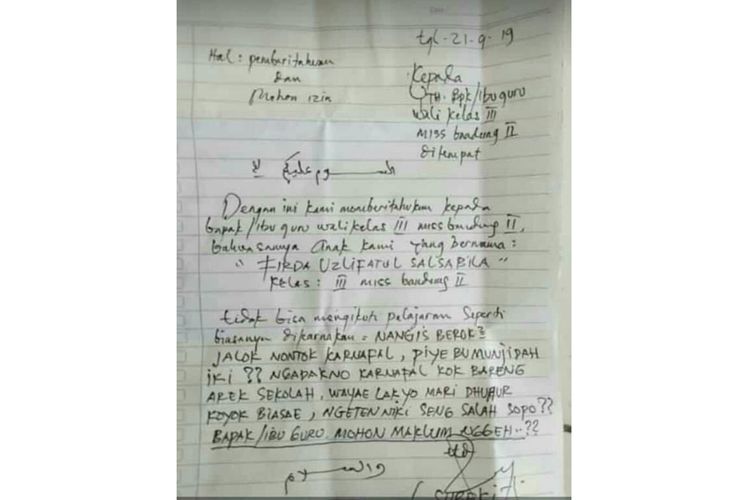 tgl. 21.9.19
Hal : pemberitahuan
dan
Mohon izin
Kepada
YTH. Bpk/ibu guru
wali kelas III
MISS bandung II
ditempat
السلام عليكم
Dengan ini kami memberitahukan kepada
bapak/ibu guru wali kelas III miss bandung II,
bahwasannya anak kami yang bernama :
" FIRDA UZLIFATUL SALSABILA "
Kelas : III miss bandung II
tidak bisa mengikuti pelajaran seperti
biasanya dikarnakan = NANGIS BEROK2
JALOK NONTOK KARNAFAL, PIYE BU MUNJIDAH
iki ?? NGADAKNO KARNAFAL KOK BARENG
AREK SEKOLAH, WAYAE LAK YO MARI DHUHUR
KOYOK BIASAE, NGETEN NIKI SENG SALAH SOPO??
BAPAK/IBU GURU MOHON MAKLUM NGGEH..??
ttd
والسلام